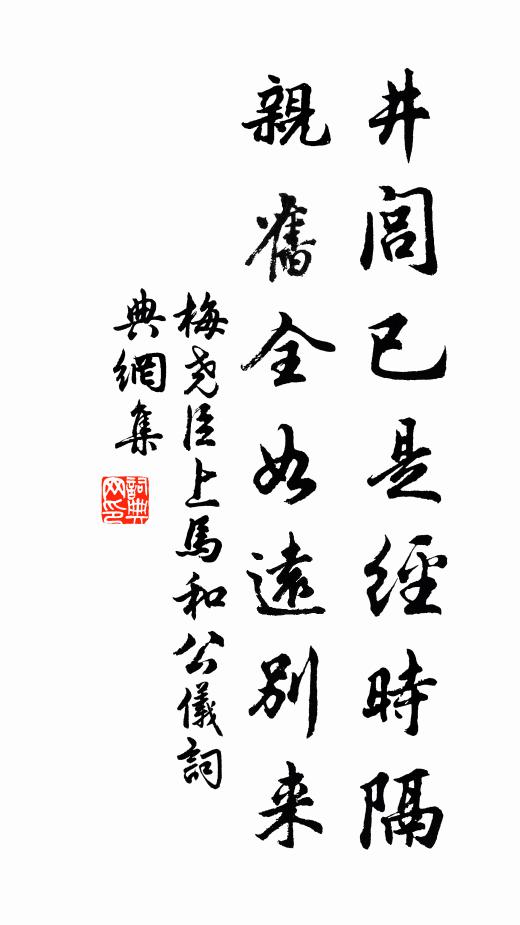 井闾已是經時隔
親舊全如遠別来
梅尧臣上馬和公儀詞
典網集
詞典
网印